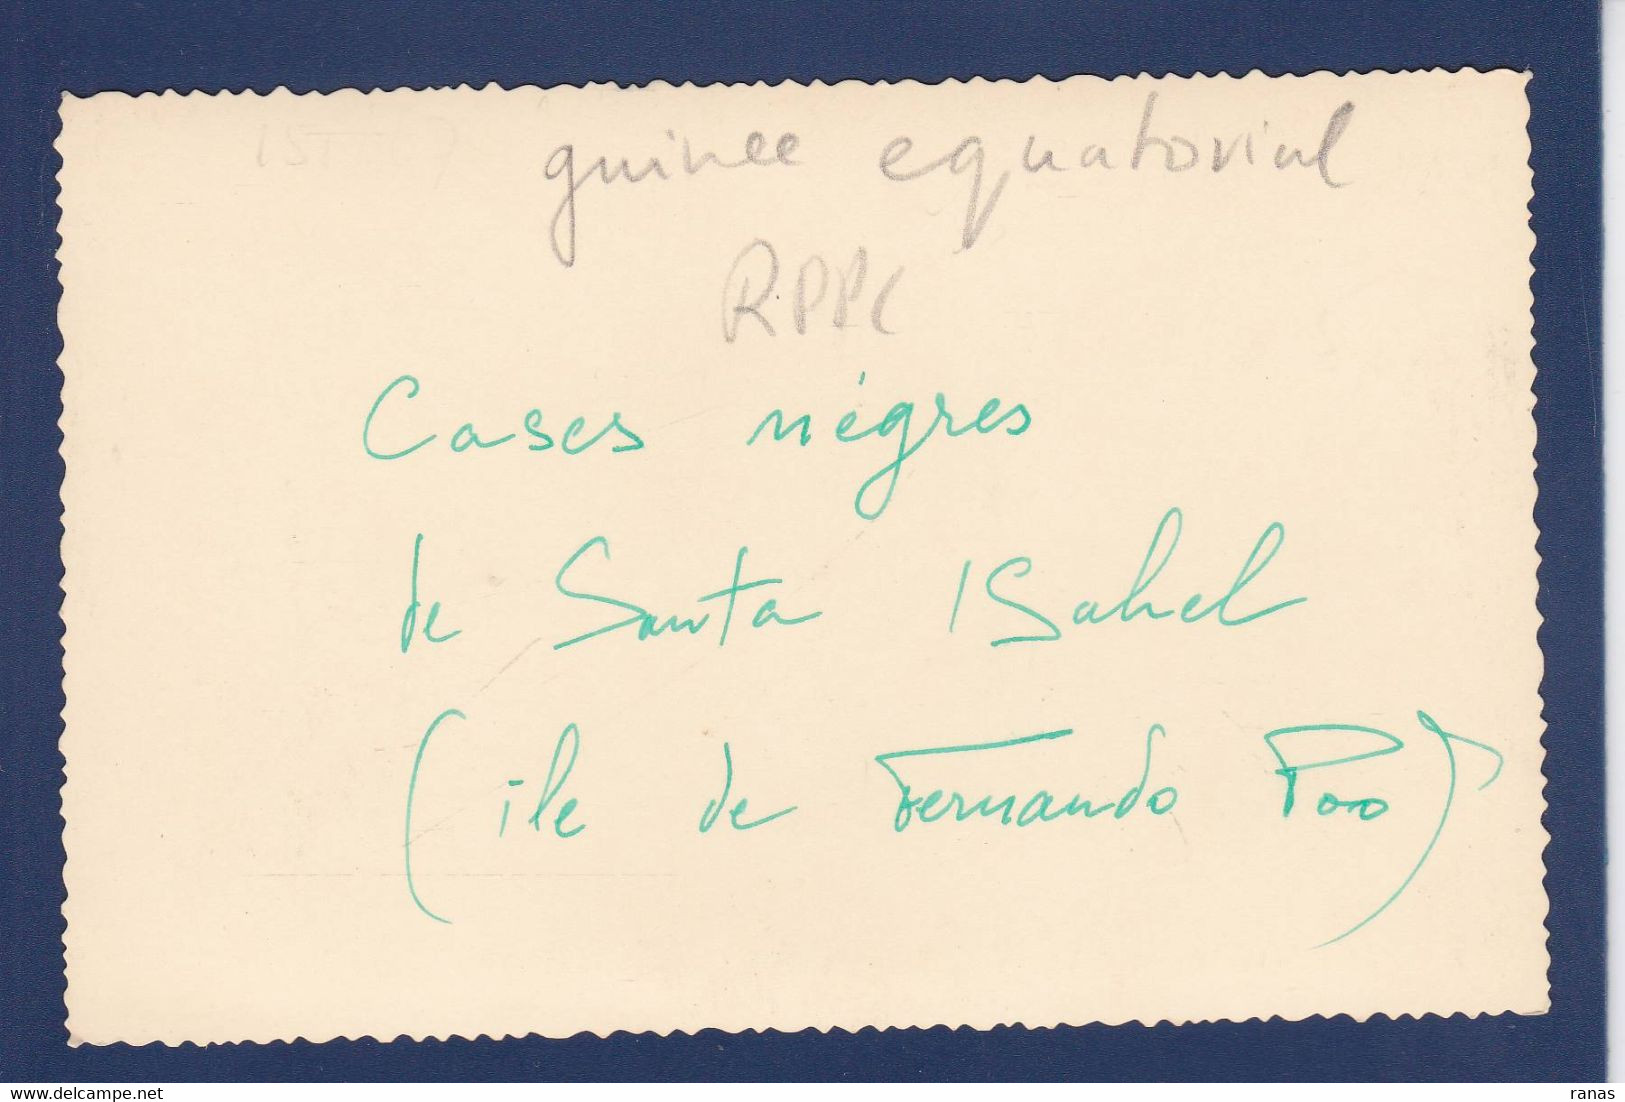 guinee equatorial
RPPC
Cases nègres
de Santa ISabel
(île de Fernando Poo)
delcampe.net
ranas